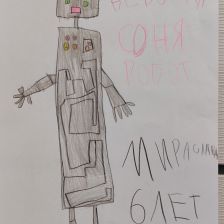 СОНЯ
РОБОТ
МИРОСЛАВА
6 ЛЕТ